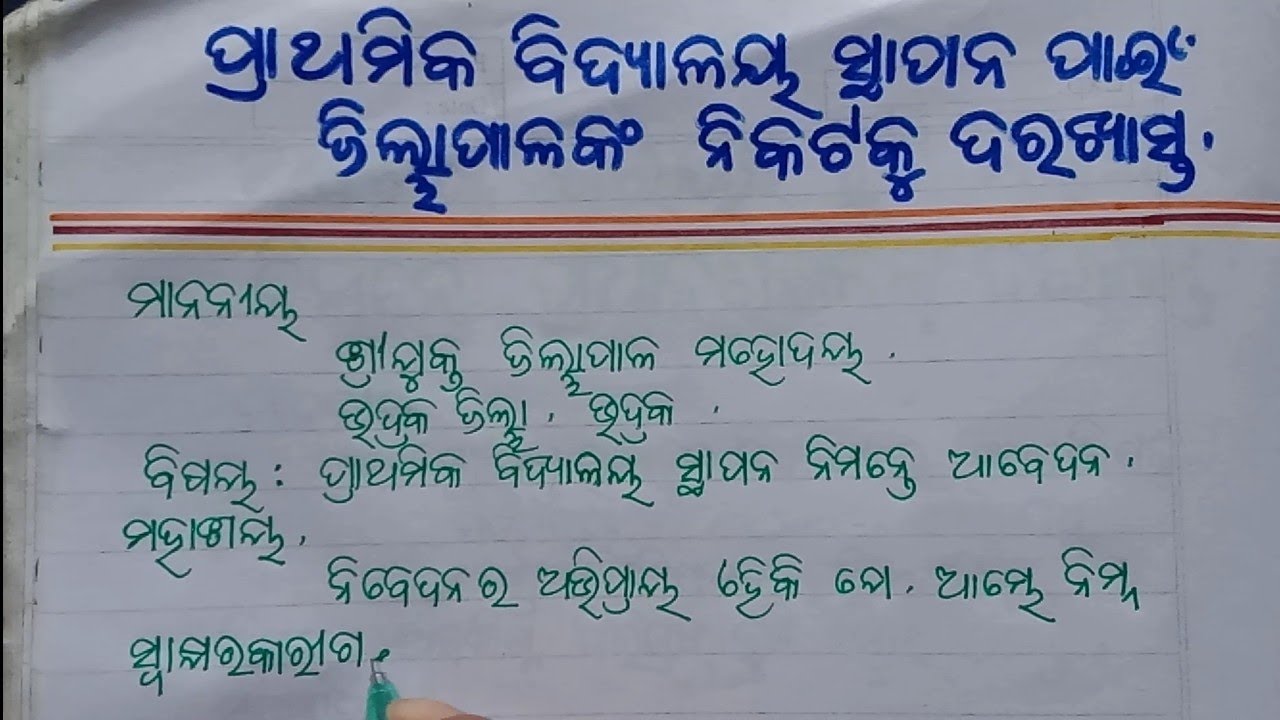 ପ୍ରାଥମିକ ବିଦ୍ୟାଳୟ ସ୍ଥାପନ ପାଇଁ
ଜିଲ୍ଲାପାଳଙ୍କ ନିକଟକୁ ଦରଖାସ୍ତ.
ମାନନୀୟ
ଶ୍ରୀଯୁକ୍ତ ଜିଲ୍ଲାପାଳ ମହୋଦୟ.
ଭଦ୍ରକ ଜିଲ୍ଲା. ଭଦ୍ରକ.
ବିଷୟ: ପ୍ରାଥମିକ ବିଦ୍ୟାଳୟ ସ୍ଥାପନ ନିମନ୍ତେ ଆବେଦନ.
ମହାଶୟ.
ନିବେଦନର ଅଭିପ୍ରାୟ ଏହିକି ଯେ. ଆମ୍ଭେ ନିମ୍ନ
ସ୍ୱାକ୍ଷରକାରୀଗ